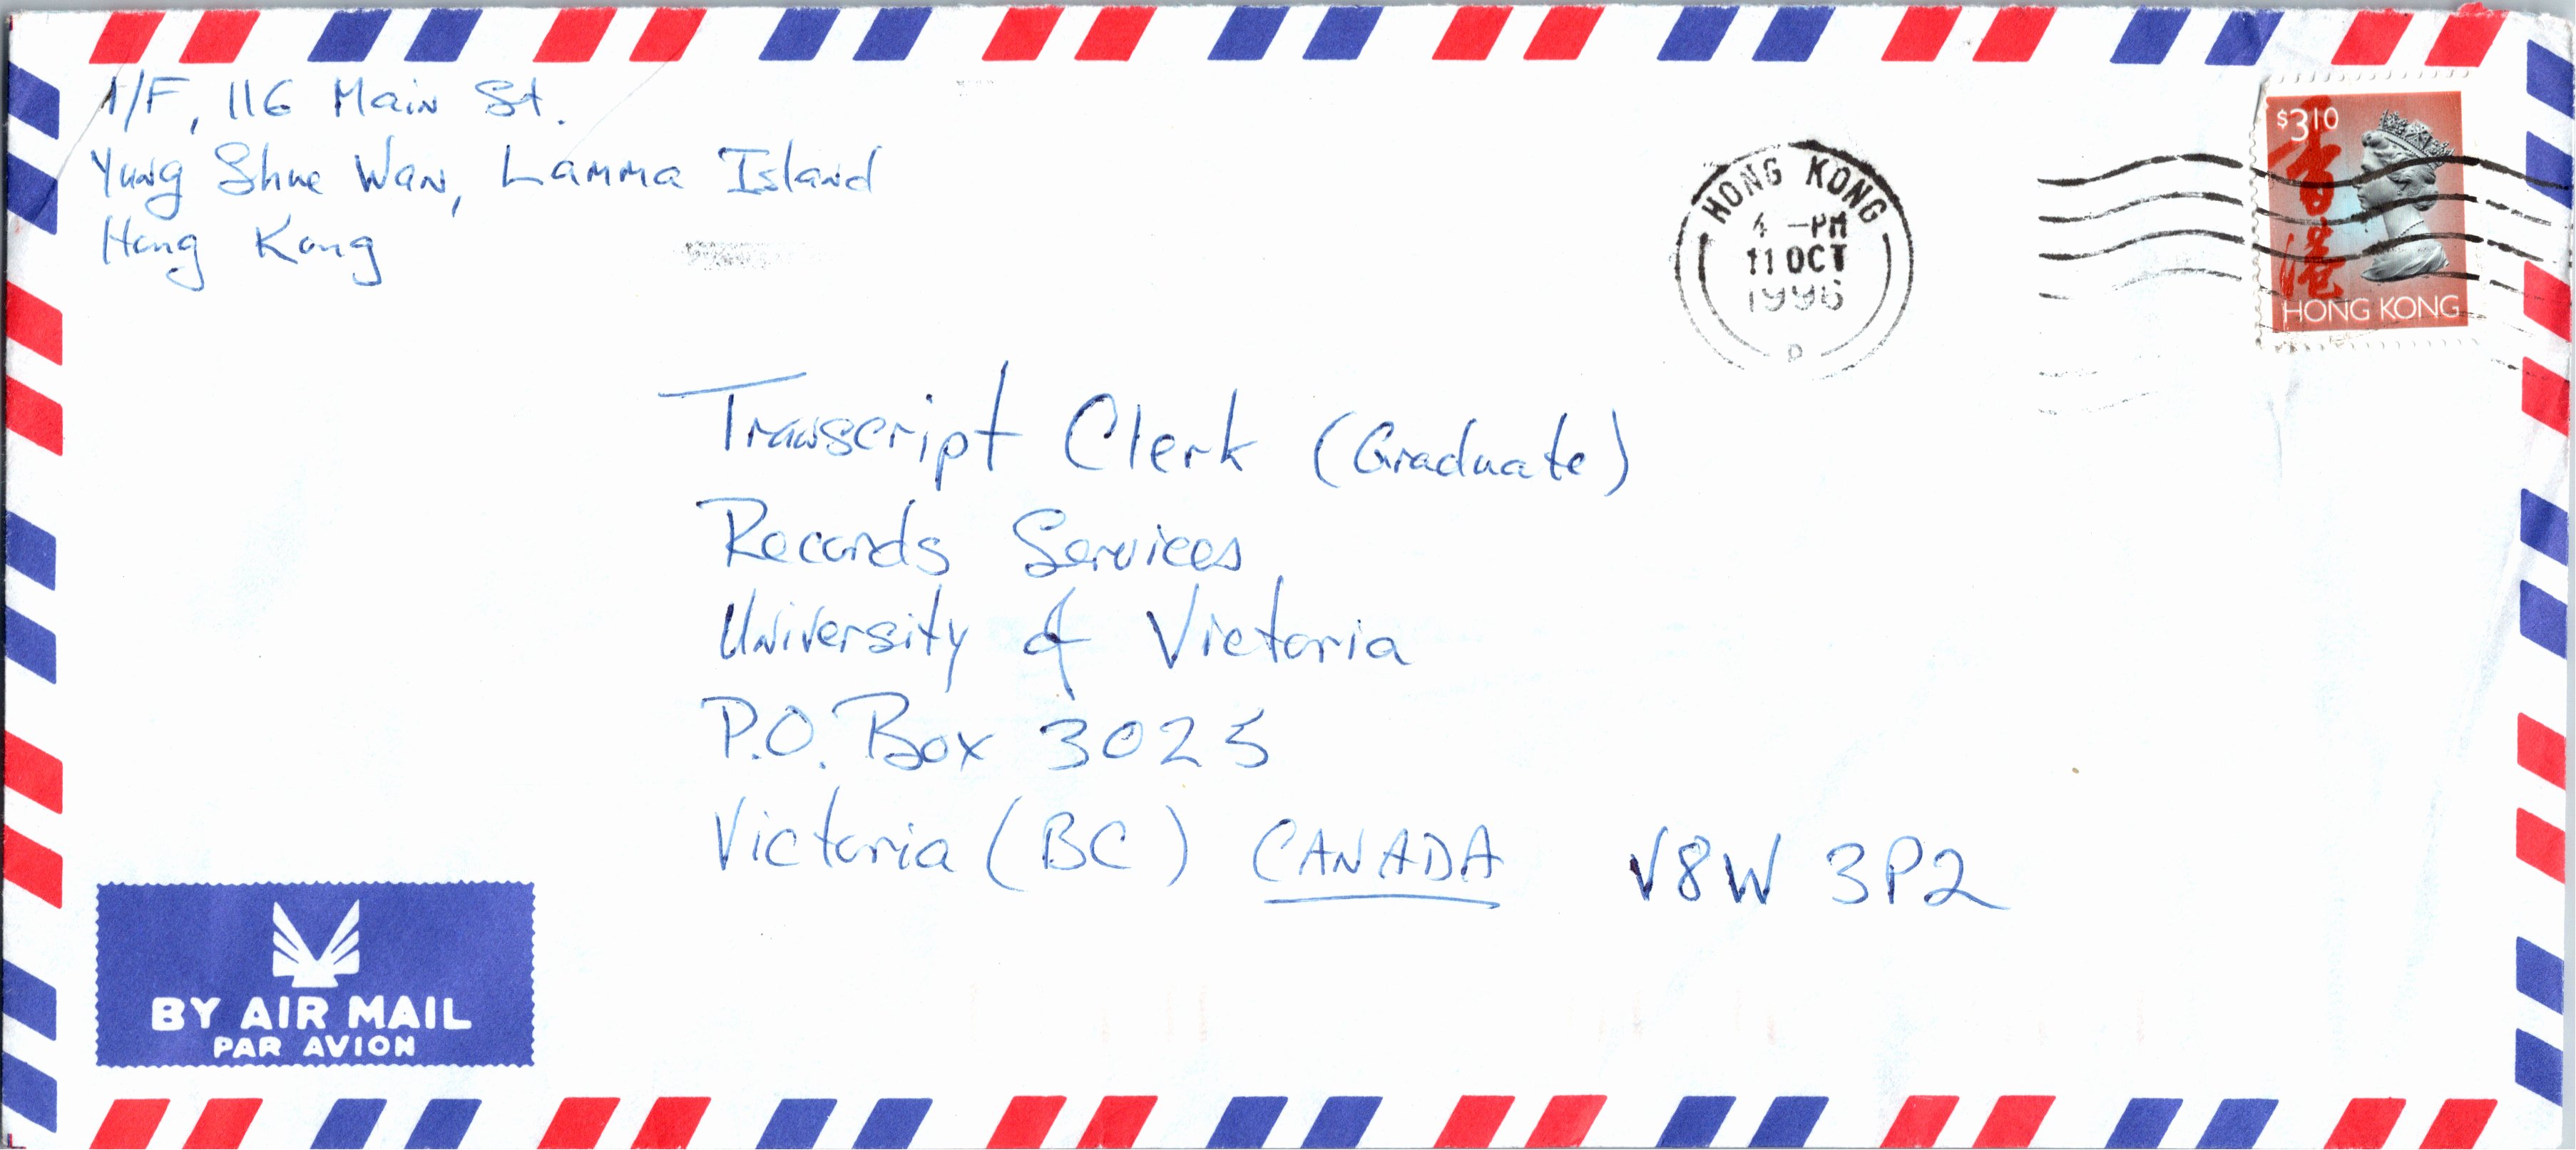 1/F, 116 Main St.
Yung Shue Wan, Lamma Island
Hong Kong
HONG KONG
4 -PM
11 OCT
1996
D
$3.10
香港
HONG KONG
Transcript Clerk (Graduate)
Records Services
University of Victoria
P.O. Box 3025
Victoria (BC) CANADA V8W 3P2
BY AIR MAIL
PAR AVION